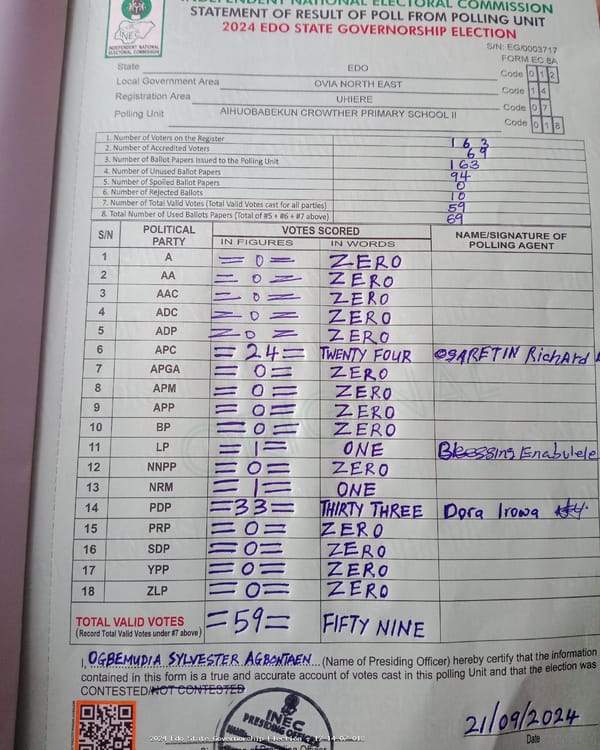 INDEPENDENT NATIONAL ELECTORAL COMMISSION
STATEMENT OF RESULT OF POLL FROM POLLING UNIT
2024 EDO STATE GOVERNORSHIP ELECTION
INEC
INDEPENDENT NATIONAL ELECTORAL COMMISSION
S/N: EG/0003717
FORM EC 8A
State EDO Code 0 1 2
Local Government Area OVIA NORTH EAST Code 1 4
Registration Area UHIERE Code 0 7
Polling Unit AIHUOBABEKUN CROWTHER PRIMARY SCHOOL II Code 0 1 8
1. Number of Voters on the Register 163
2. Number of Accredited Voters 69
3. Number of Ballot Papers Issued to the Polling Unit 163
4. Number of Unused Ballot Papers 94
5. Number of Spoiled Ballot Papers 0
6. Number of Rejected Ballots 10
7. Number of Total Valid Votes (Total Valid Votes cast for all parties) 59
8. Total Number of Used Ballots Papers (Total of #5 + #6 + #7 above) 69
S/N POLITICAL PARTY VOTES SCORED NAME/SIGNATURE OF POLLING AGENT
IN FIGURES IN WORDS
1 A =0= ZERO
2 AA =0= ZERO
3 AAC =0= ZERO
4 ADC =0= ZERO
5 ADP =0= ZERO
6 APC =24= TWENTY FOUR OSARETIN RichARd
7 APGA =0= ZERO
8 APM =0= ZERO
9 APP =0= ZERO
10 BP =0= ZERO
11 LP =1= ONE Blessing Enabulele
12 NNPP =0= ZERO
13 NRM =1= ONE
14 PDP =33= THIRTY THREE Dora Irowa
15 PRP =0= ZERO
16 SDP =0= ZERO
17 YPP =0= ZERO
18 ZLP =0= ZERO
TOTAL VALID VOTES =59= FIFTY NINE
(Record Total Valid Votes under #7 above)
I, OGBEMUDIA SYLVESTER AGBONTAEN...(Name of Presiding Officer) hereby certify that the information
contained in this form is a true and accurate account of votes cast in this polling Unit and that the election was
CONTESTED/NOT CONTESTED
INEC
21/09/2024
Date
2024 Edo State Governorship Election - 12-14-07-018